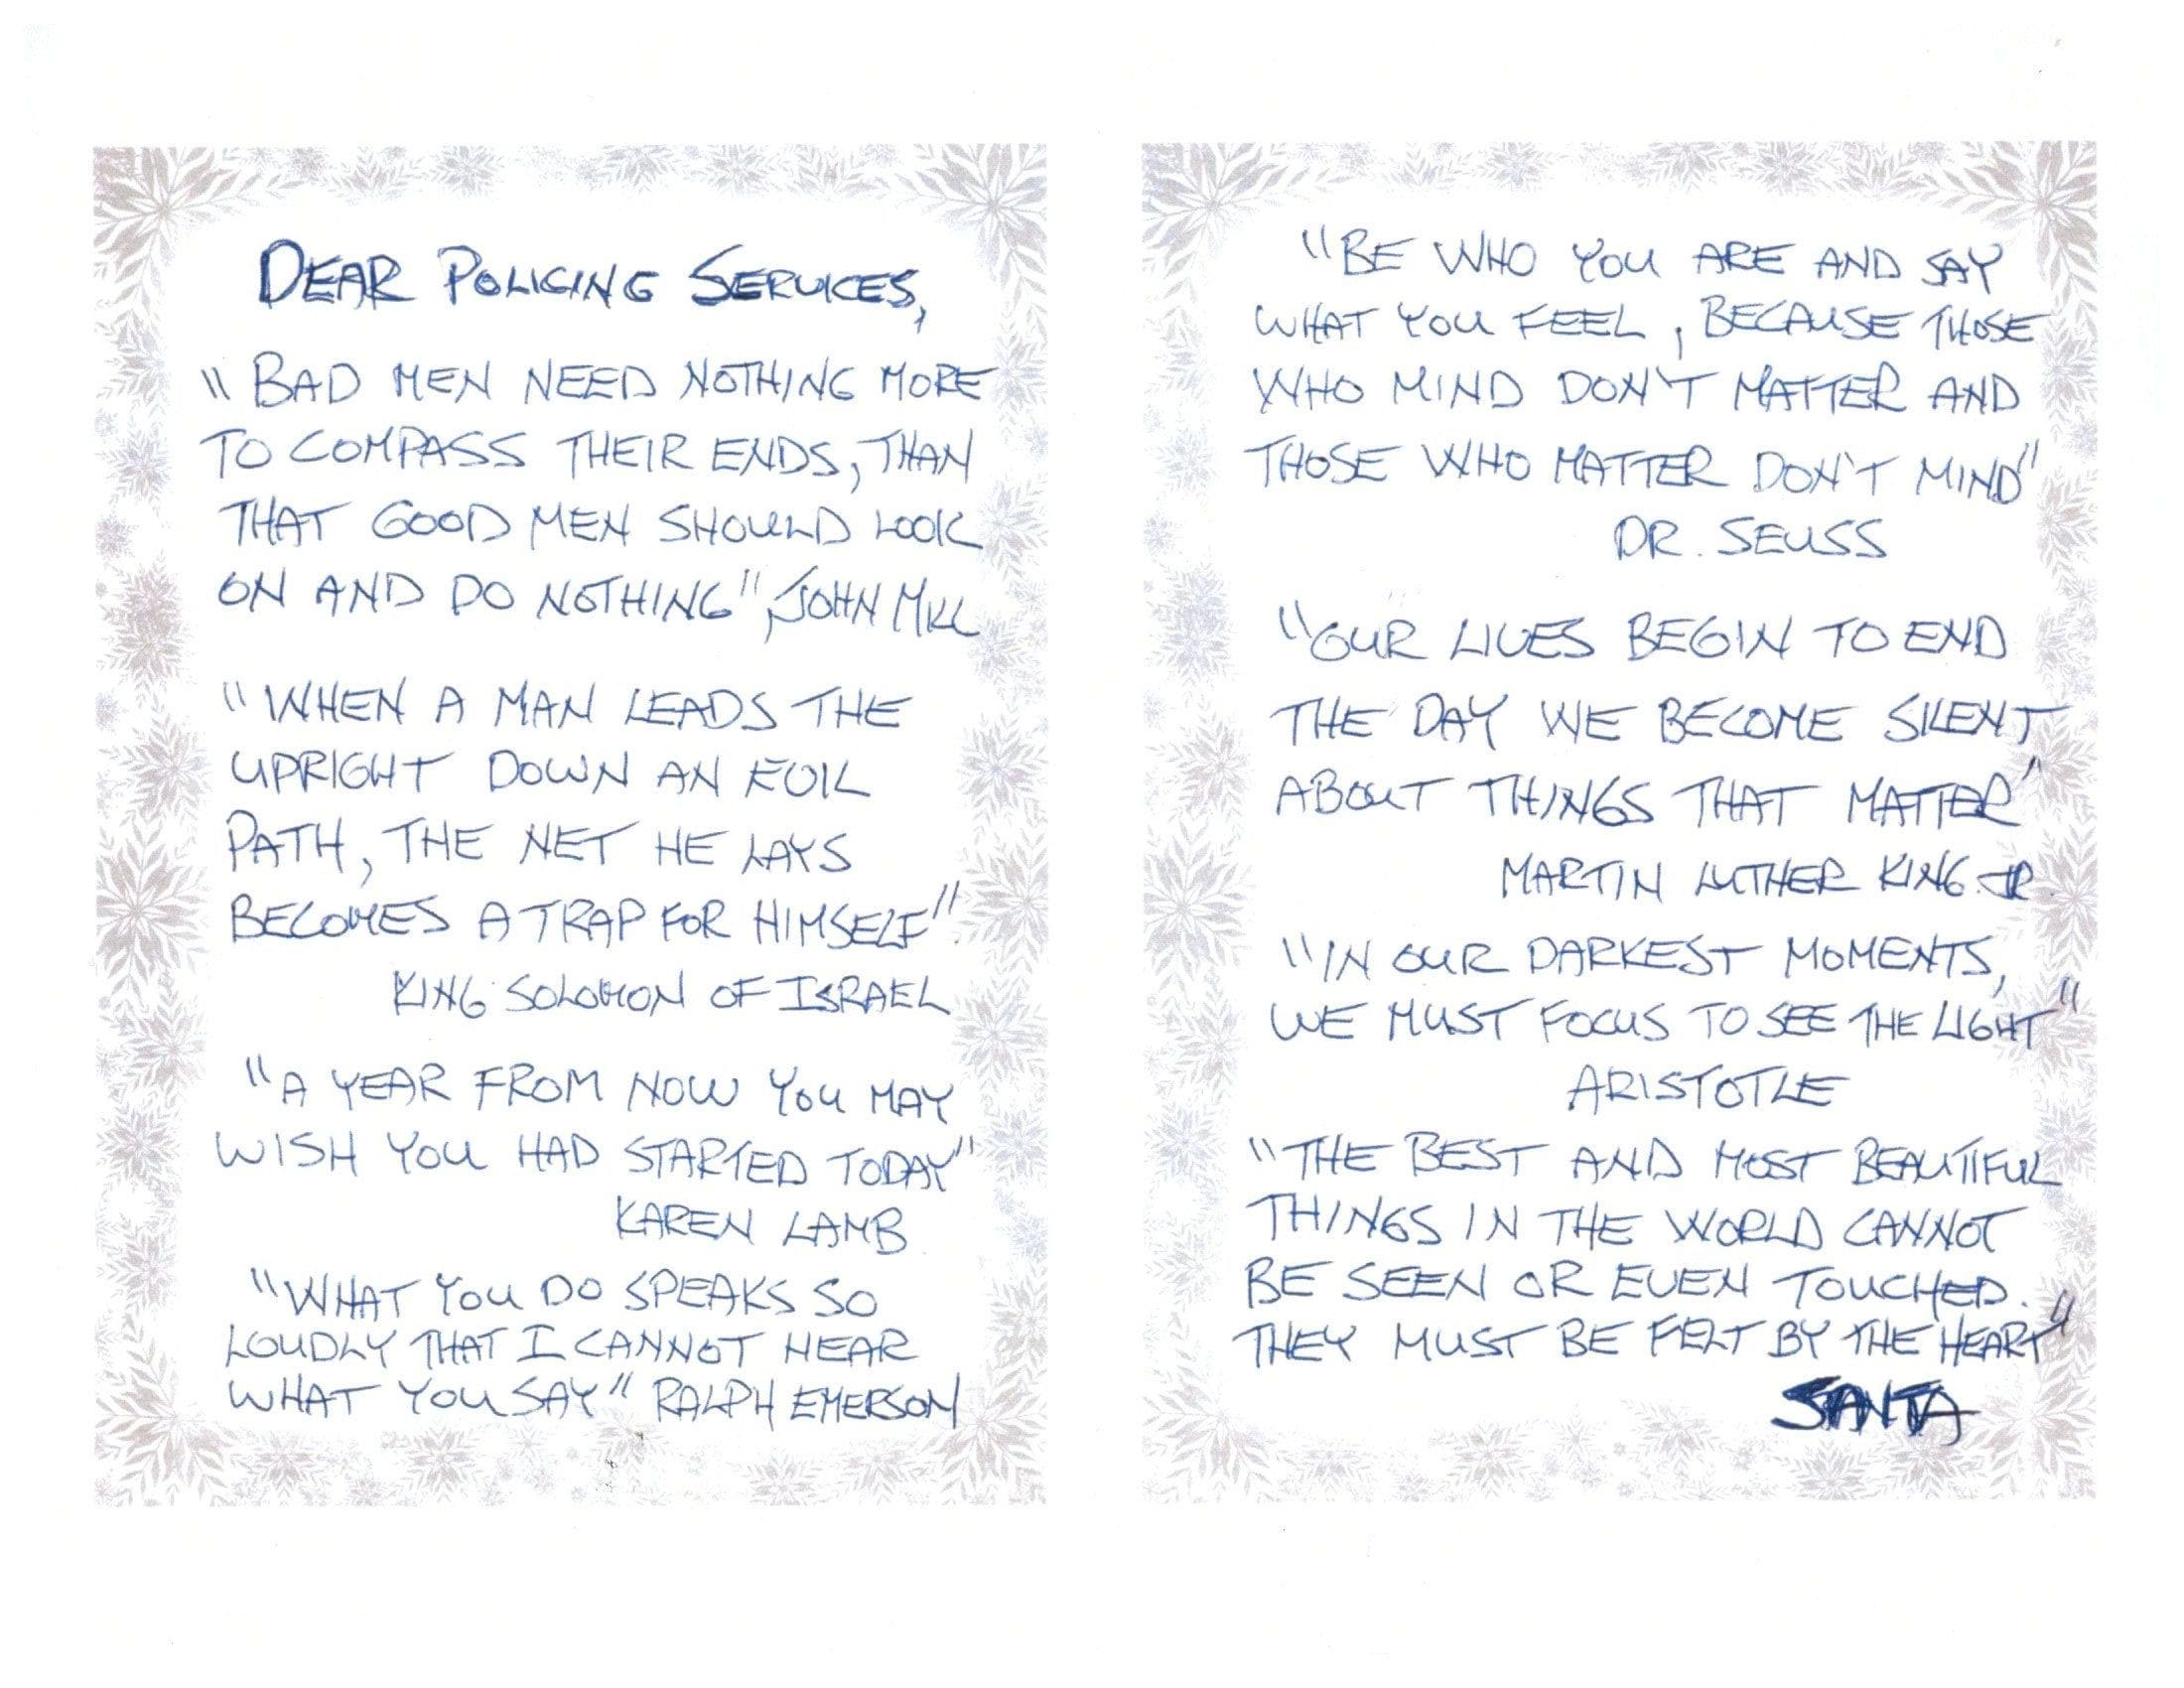 DEAR POLICING SERVICES,
"BAD MEN NEED NOTHING MORE
TO COMPASS THEIR ENDS, THAN
THAT GOOD MEN SHOULD LOOK
ON AND DO NOTHING", JOHN MILL
"WHEN A MAN LEADS THE
UPRIGHT DOWN AN EVIL
PATH, THE NET HE LAYS
BECOMES A TRAP FOR HIMSELF".
KING SOLOMON OF ISRAEL
"A YEAR FROM NOW YOU MAY
WISH YOU HAD STARTED TODAY"
KAREN LAMB
"WHAT YOU DO SPEAKS SO
LOUDLY THAT I CANNOT HEAR
WHAT YOU SAY" RALPH EMERSON
"BE WHO YOU ARE AND SAY
WHAT YOU FEEL, BECAUSE THOSE
WHO MIND DON'T MATTER AND
THOSE WHO MATTER DON'T MIND"
DR. SEUSS
"OUR LIVES BEGIN TO END
THE DAY WE BECOME SILENT
ABOUT THINGS THAT MATTER"
MARTIN LUTHER KING JR.
"IN OUR DARKEST MOMENTS,
WE MUST FOCUS TO SEE THE LIGHT"
ARISTOTLE
"THE BEST AND MOST BEAUTIFUL
THINGS IN THE WORLD CANNOT
BE SEEN OR EVEN TOUCHED.
THEY MUST BE FELT BY THE HEART"
SANTA